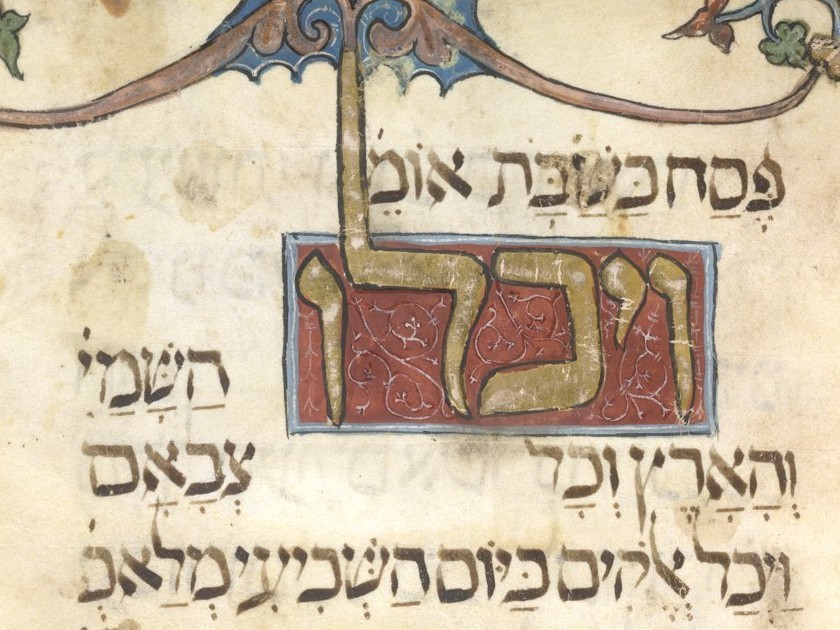 פֶּסַח בַּשַּׁבָּת אוֹמֵ'
ויכלו
הַשָּׁמַיִ'
וְהָאָרֶץ וְכָל צְבָאָם
וַיְכַל אֱלֹהִים בַּיּוֹם הַשְּׁבִיעִי מְלַאכְ'